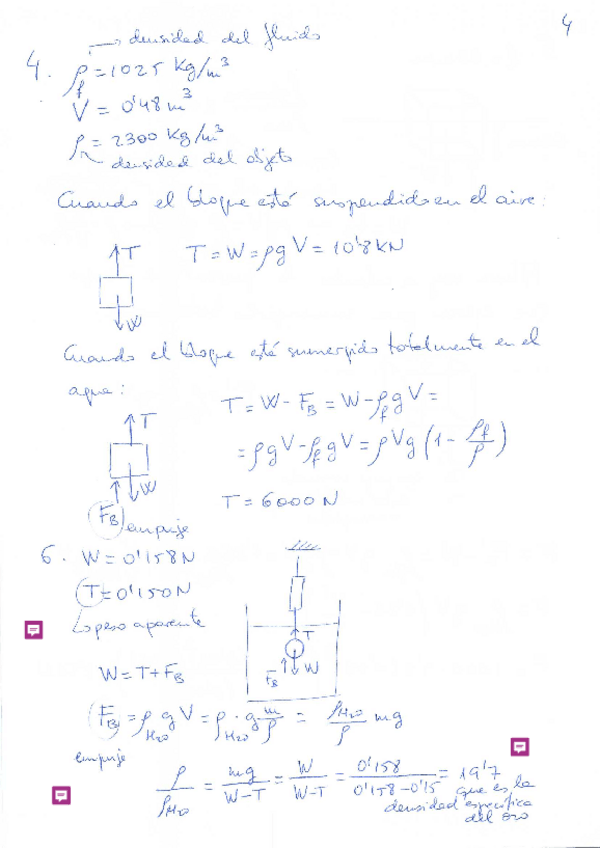 4
→ densidad del fluido
4. ρf = 1025 Kg/m³
V = 0'48 m³
ρ = 2300 Kg/m³
densidad del objeto
Cuando el bloque está suspendido en el aire:
T
T = W = ρgV = 10'8 KN
W
Cuando el bloque está sumergido totalmente en el
agua:
T = W - FB = W - ρf g V =
T
= ρgV - ρf gV = ρVg (1 - ρf/ρ)
W
T = 6000 N
FB empuje
6. W = 0'158 N
T = 0'150 N
↳ peso aparente
T
FB W
W = T + FB
FB = ρH₂O g V = ρH₂O · g m/ρ = ρH₂O/ρ mg
empuje
ρ/ρH₂O = mg/W-T = W/W-T = 0'158/0'158-0'15 = 19'7
que es la
densidad específica
del oro